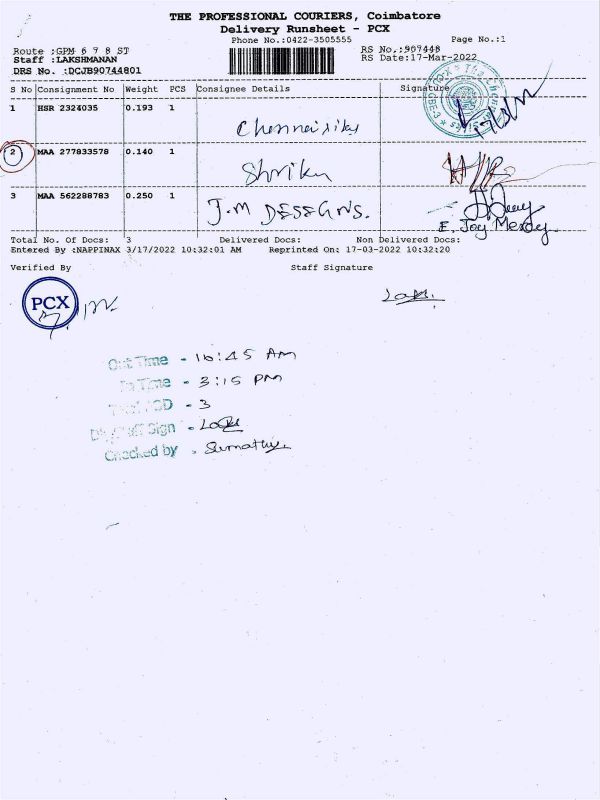 THE PROFESSIONAL COURIERS, Coimbatore
Delivery Runsheet - PCX
Phone No.:0422-3505555 Page No.:1
Route :GPM 6 7 8 ST RS No.:907448
Staff :LAKSHMANAN RS Date:17-Mar-2022
DRS No. :DCJB90744801
S No Consignment No Weight PCS Consignee Details Signature
1 HSR 2324035 0.193 1
2 MAA 277833578 0.140 1
3 MAA 562288783 0.250 1
J.M DESSGNS.
E. Joy Mercy
Total No. Of Docs: 3 Delivered Docs: Non Delivered Docs:
Entered By :NAPPINAX 3/17/2022 10:32:01 AM Reprinted On: 17-03-2022 10:32:20
Verified By Staff Signature
PCX
Out Time - 10:45 AM
In Time - 3:15 PM
- 3
Sign -
Checked by - Sumathi